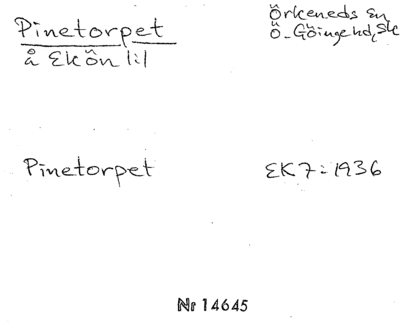 Pinetorpet
å Ekön 1:1
Örkeneds sn
Ö-Göinge hd, Sk
Pinetorpet
EK7:1936
Nr 14645